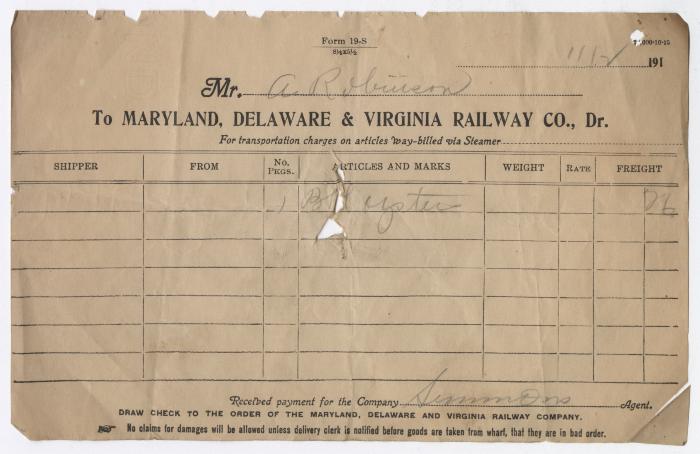 Form 19-S
8½x5½
000-10-15
191
Mr. A. Robinson
To MARYLAND, DELAWARE & VIRGINIA RAILWAY CO., Dr.
For transportation charges on articles way-billed via Steamer
SHIPPER FROM No. PKGS. ARTICLES AND MARKS WEIGHT RATE FREIGHT
1 oyster 76
Received payment for the Company Simmons Agent.
DRAW CHECK TO THE ORDER OF THE MARYLAND, DELAWARE AND VIRGINIA RAILWAY COMPANY.
No claims for damages will be allowed unless delivery clerk is notified before goods are taken from wharf, that they are in bad order.